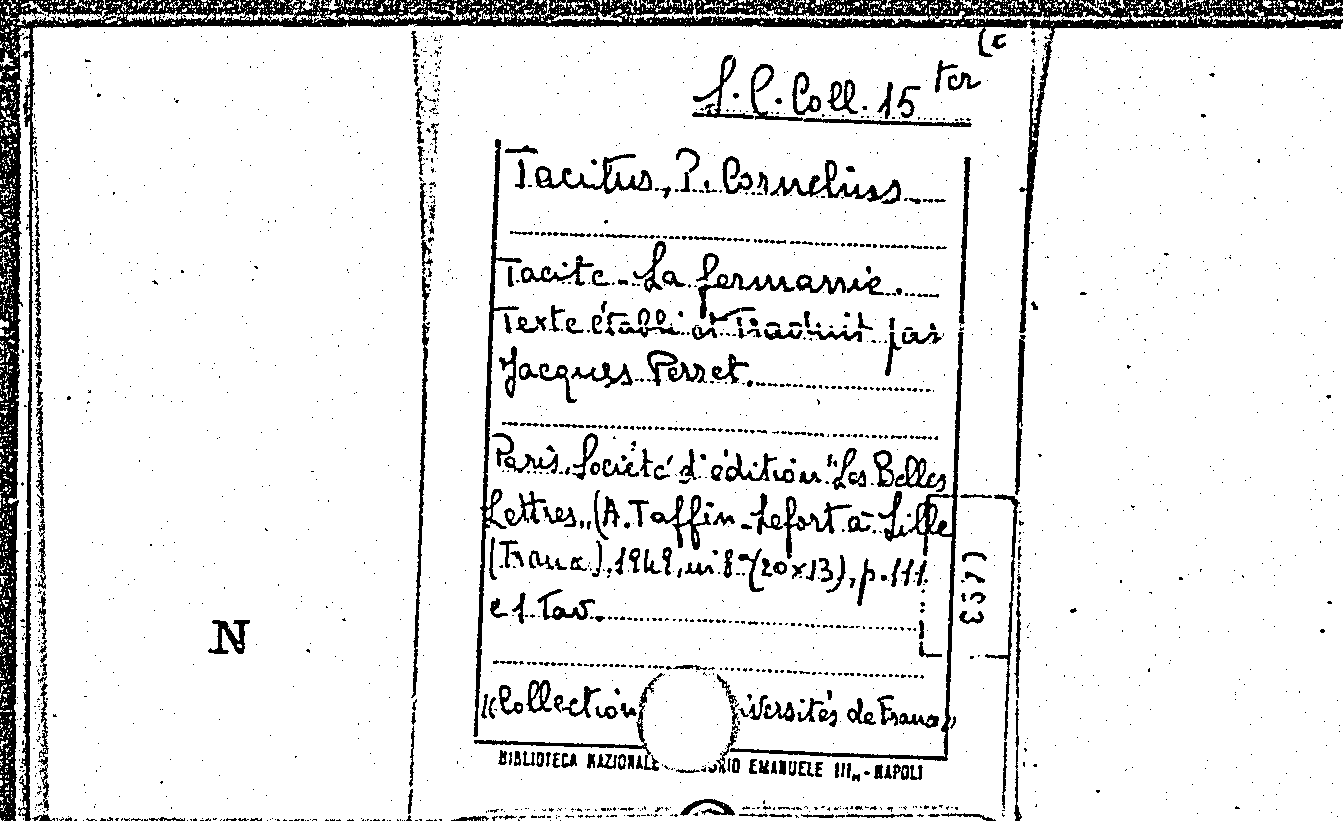 (c
S.C. Coll. 15 ter
Tacitus, P. Cornelius
Tacite - La Germanie.
Texte établi et traduit par
Jacques Perret.
Paris, Société d'édition "Les Belles
Lettres", (A. Taffin-Lefort à Lille
(France), 1949, in 8° (20x13), p. 111
e 1 tav.
(657)
N
"Collection iversités de France"
BIBLIOTECA NAZIONALE RIO EMANUELE III„ - NAPOLI